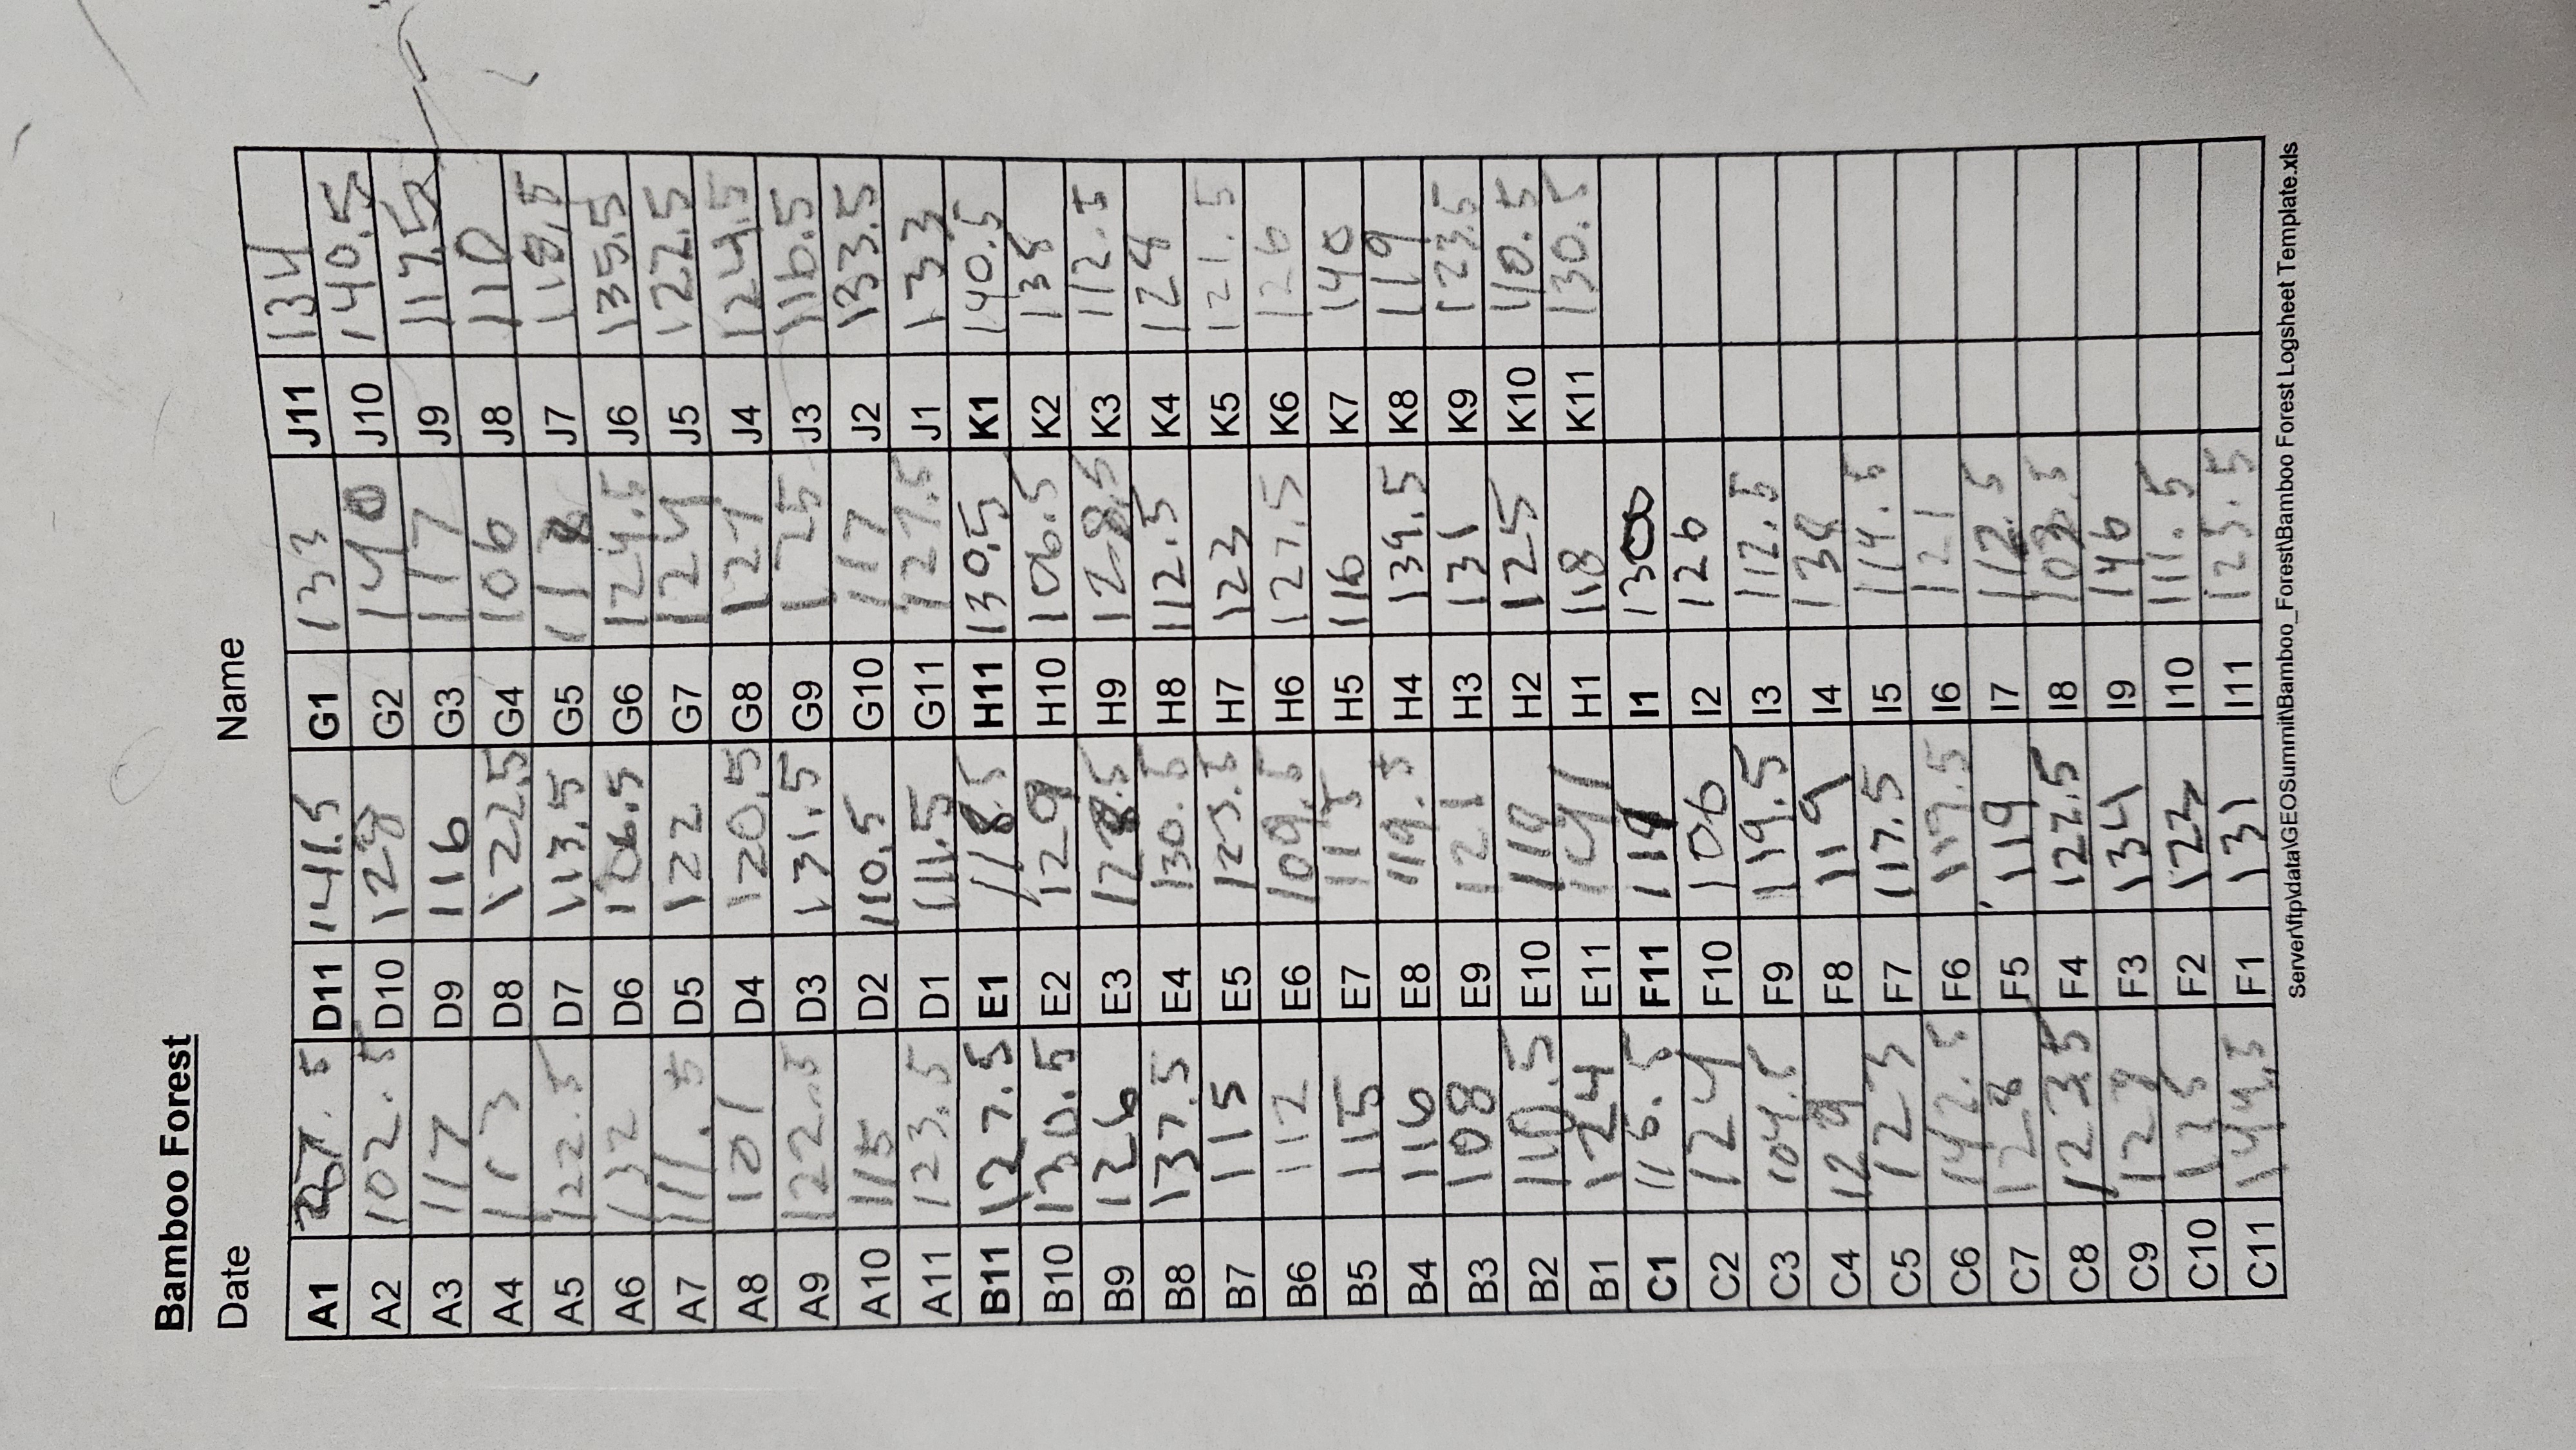 Bamboo Forest
Date Name
A1 D11 141.5 G1 133 J11 134
A2 102.5 D10 128 G2 140 J10 140.5
A3 117 D9 116 G3 117 J9 117.5
A4 113 D8 122.5 G4 106 J8 110
A5 122.5 D7 113.5 G5 J7 118.5
A6 132 D6 106.5 G6 124.5 J6 135.5
A7 111.5 D5 122 G7 124 J5 122.5
A8 101 D4 120.5 G8 127 J4 124.5
A9 122.5 D3 131.5 G9 125 J3 116.5
A10 115 D2 110.5 G10 117 J2 133.5
A11 123.5 D1 111.5 G11 127.5 J1 133
B11 127.5 E1 118.5 H11 130.5 K1 140.5
B10 130.5 E2 129 H10 106.5 K2 138
B9 126 E3 128.5 H9 128.5 K3 112.5
B8 137.5 E4 130.5 H8 112.5 K4 128
B7 115 E5 125.5 H7 123 K5 121.5
B6 112 E6 109.5 H6 127.5 K6 126
B5 115 E7 H5 116 K7 140
B4 116 E8 119.5 H4 139.5 K8 119
B3 108 E9 121 H3 131 K9 123.5
B2 110.5 E10 119 H2 125 K10 110.5
B1 124 E11 141 H1 118 K11 130.5
C1 116.5 F11 119 I1 130
C2 124 F10 106 I2 126
C3 104.5 F9 119.5 I3 112.5
C4 128 F8 119 I4 138
C5 123 F7 117.5 I5 114.5
C6 142.5 F6 117.5 I6 121
C7 128 F5 119 I7 112.5
C8 123.5 F4 127.5 I8 103.5
C9 127 F3 134 I9 146
C10 F2 I10 111.5
C11 144.5 F1 131 I11 123.5
Server\ftp\data\GEOSummit\Bamboo_Forest\Bamboo Forest Logsheet Template.xls